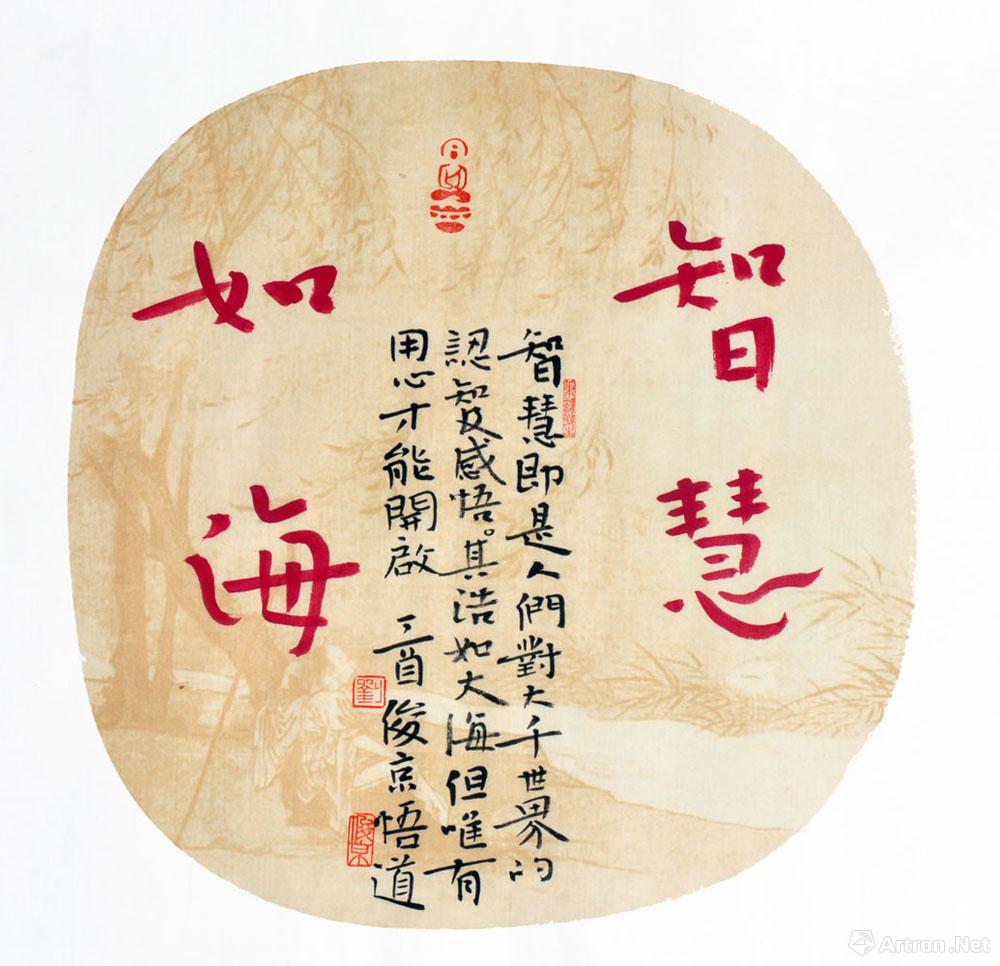 智慧
如海
智慧即是人們對大千世界的
認知及感悟。其浩如大海但唯有
用心思才能開啟 三首俊京悟道
劉
俊京
Artron.Net